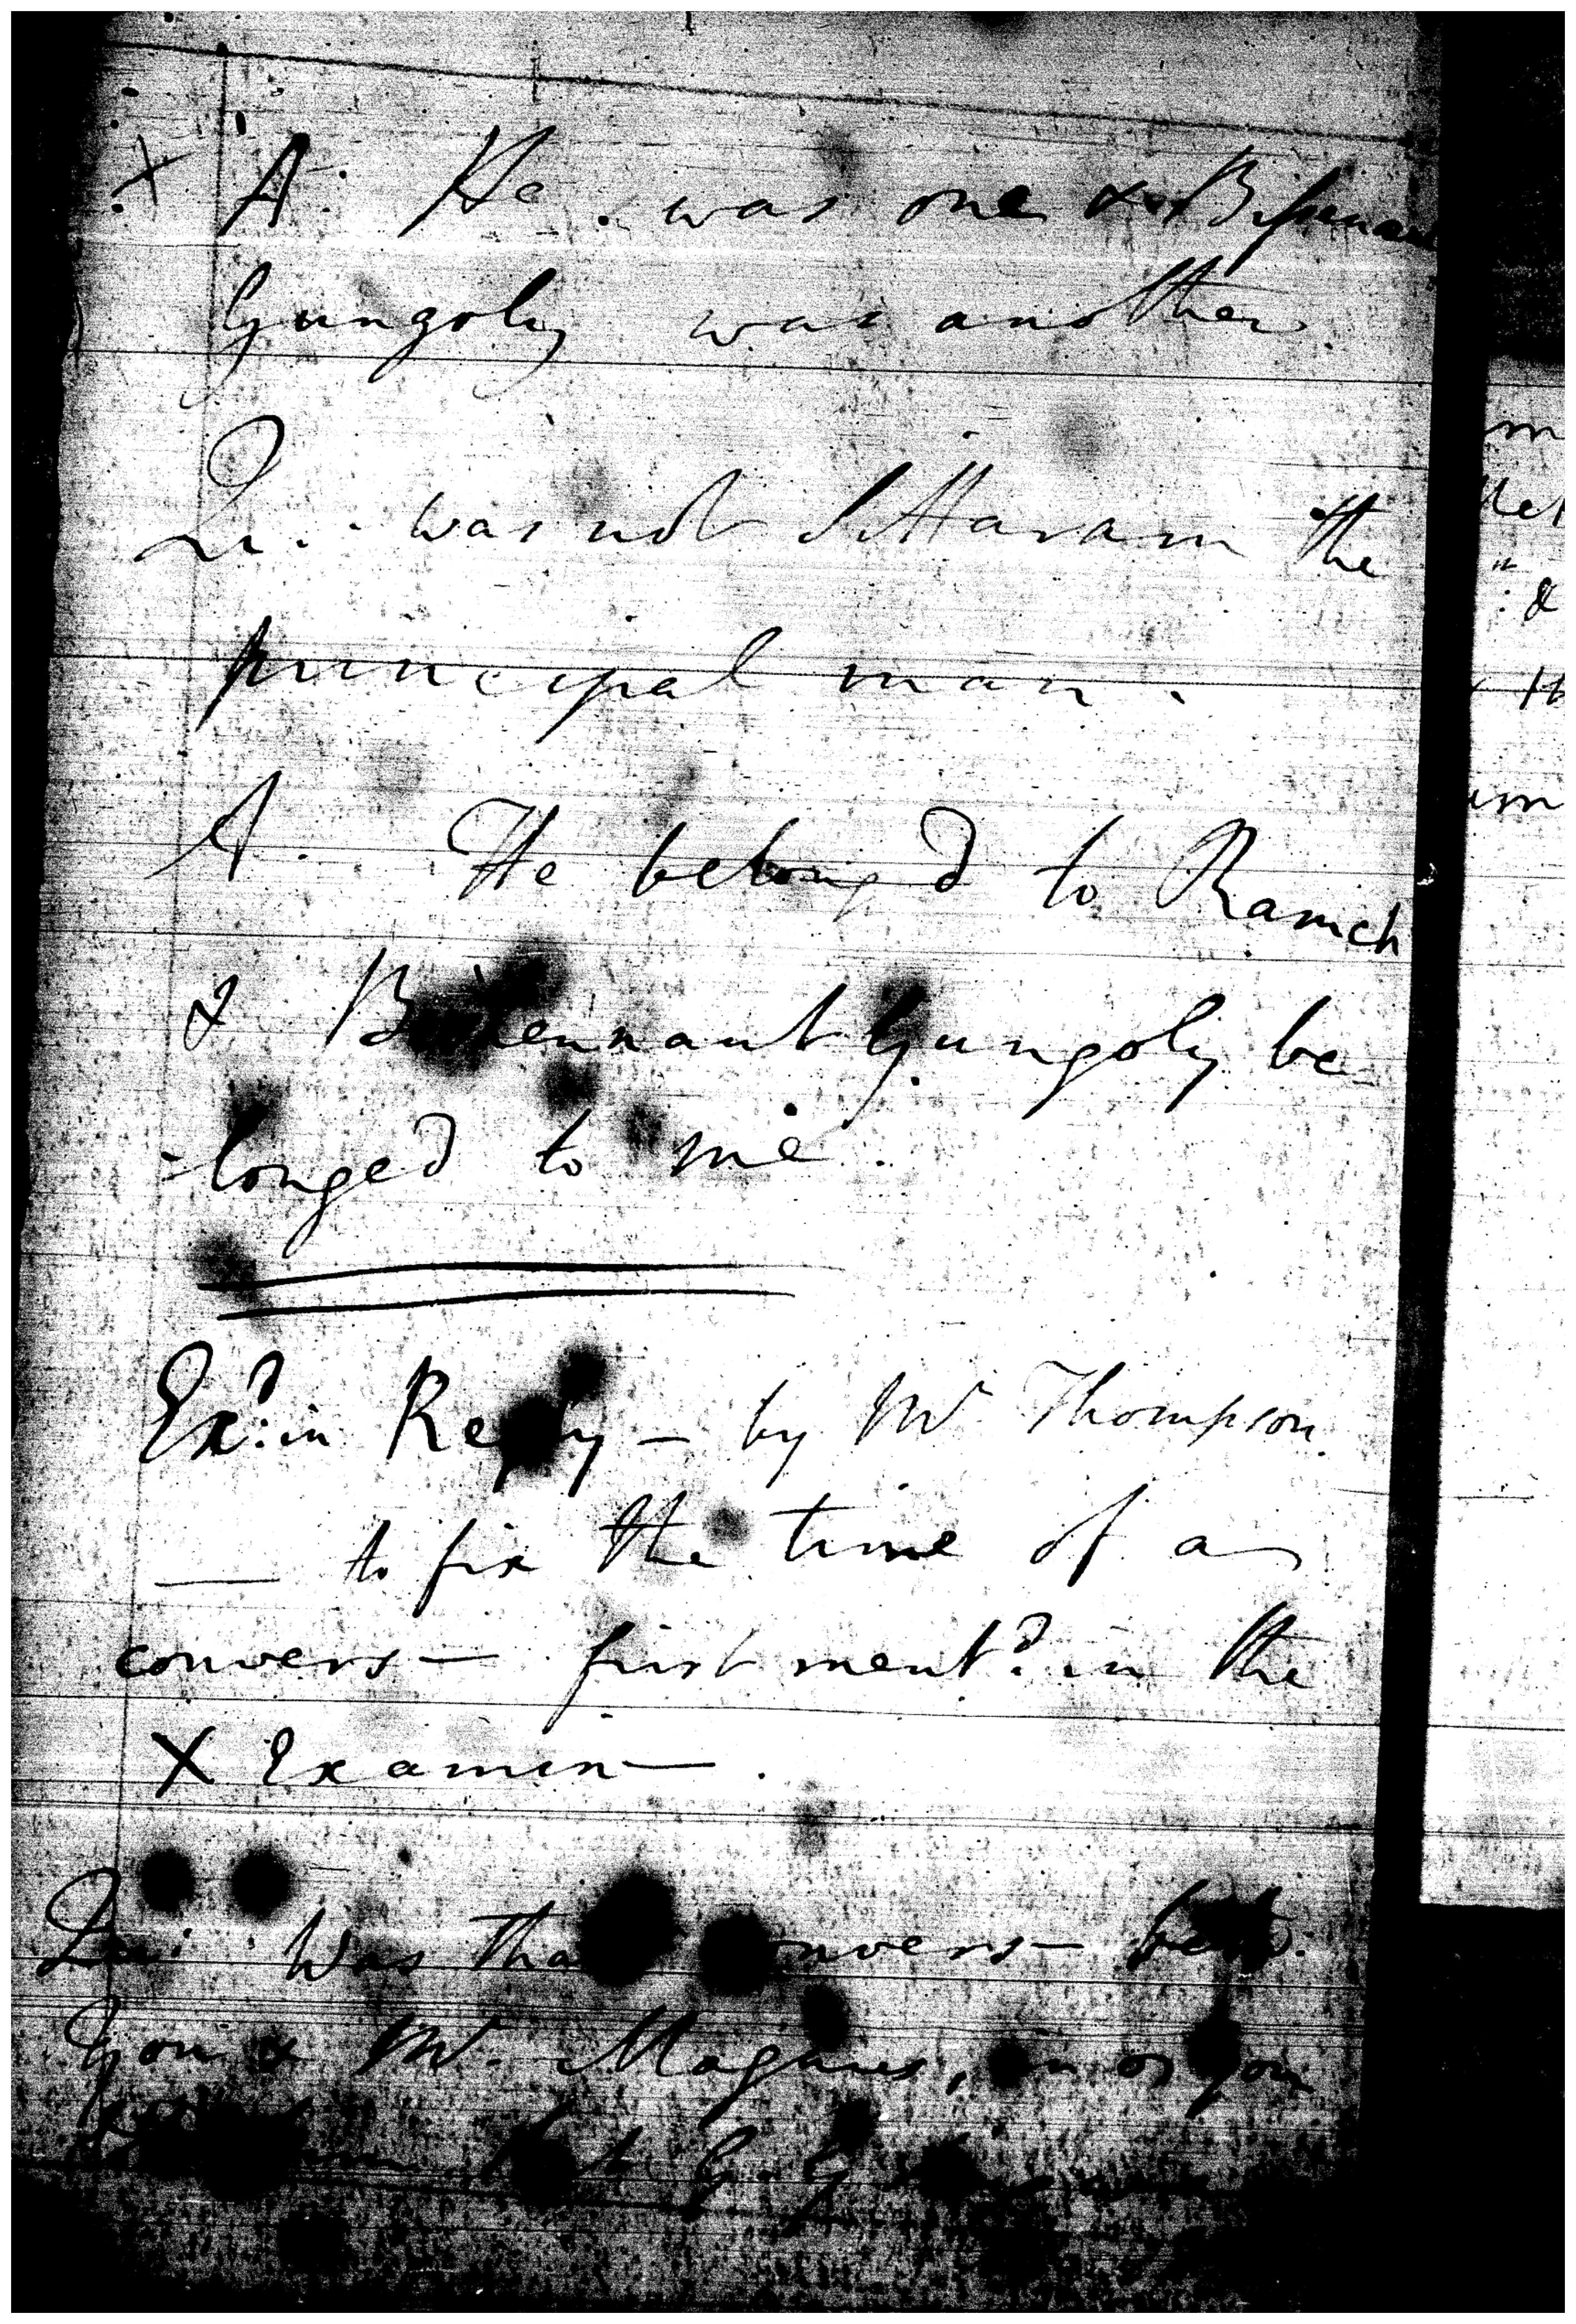 X A. He was one &
Gungoly was another
Qu. was not Sittaram the
principal man.
A. He belonged to Ramch
& Gungoly be
-longed to me.
Exd. in Reply — by Mr Thompson.
— to fix the time of a
convers— first mentd. in the
X Examin—.
Qu: Was that convers— betw.
you & Mr. Magnus, in or you
G. G.